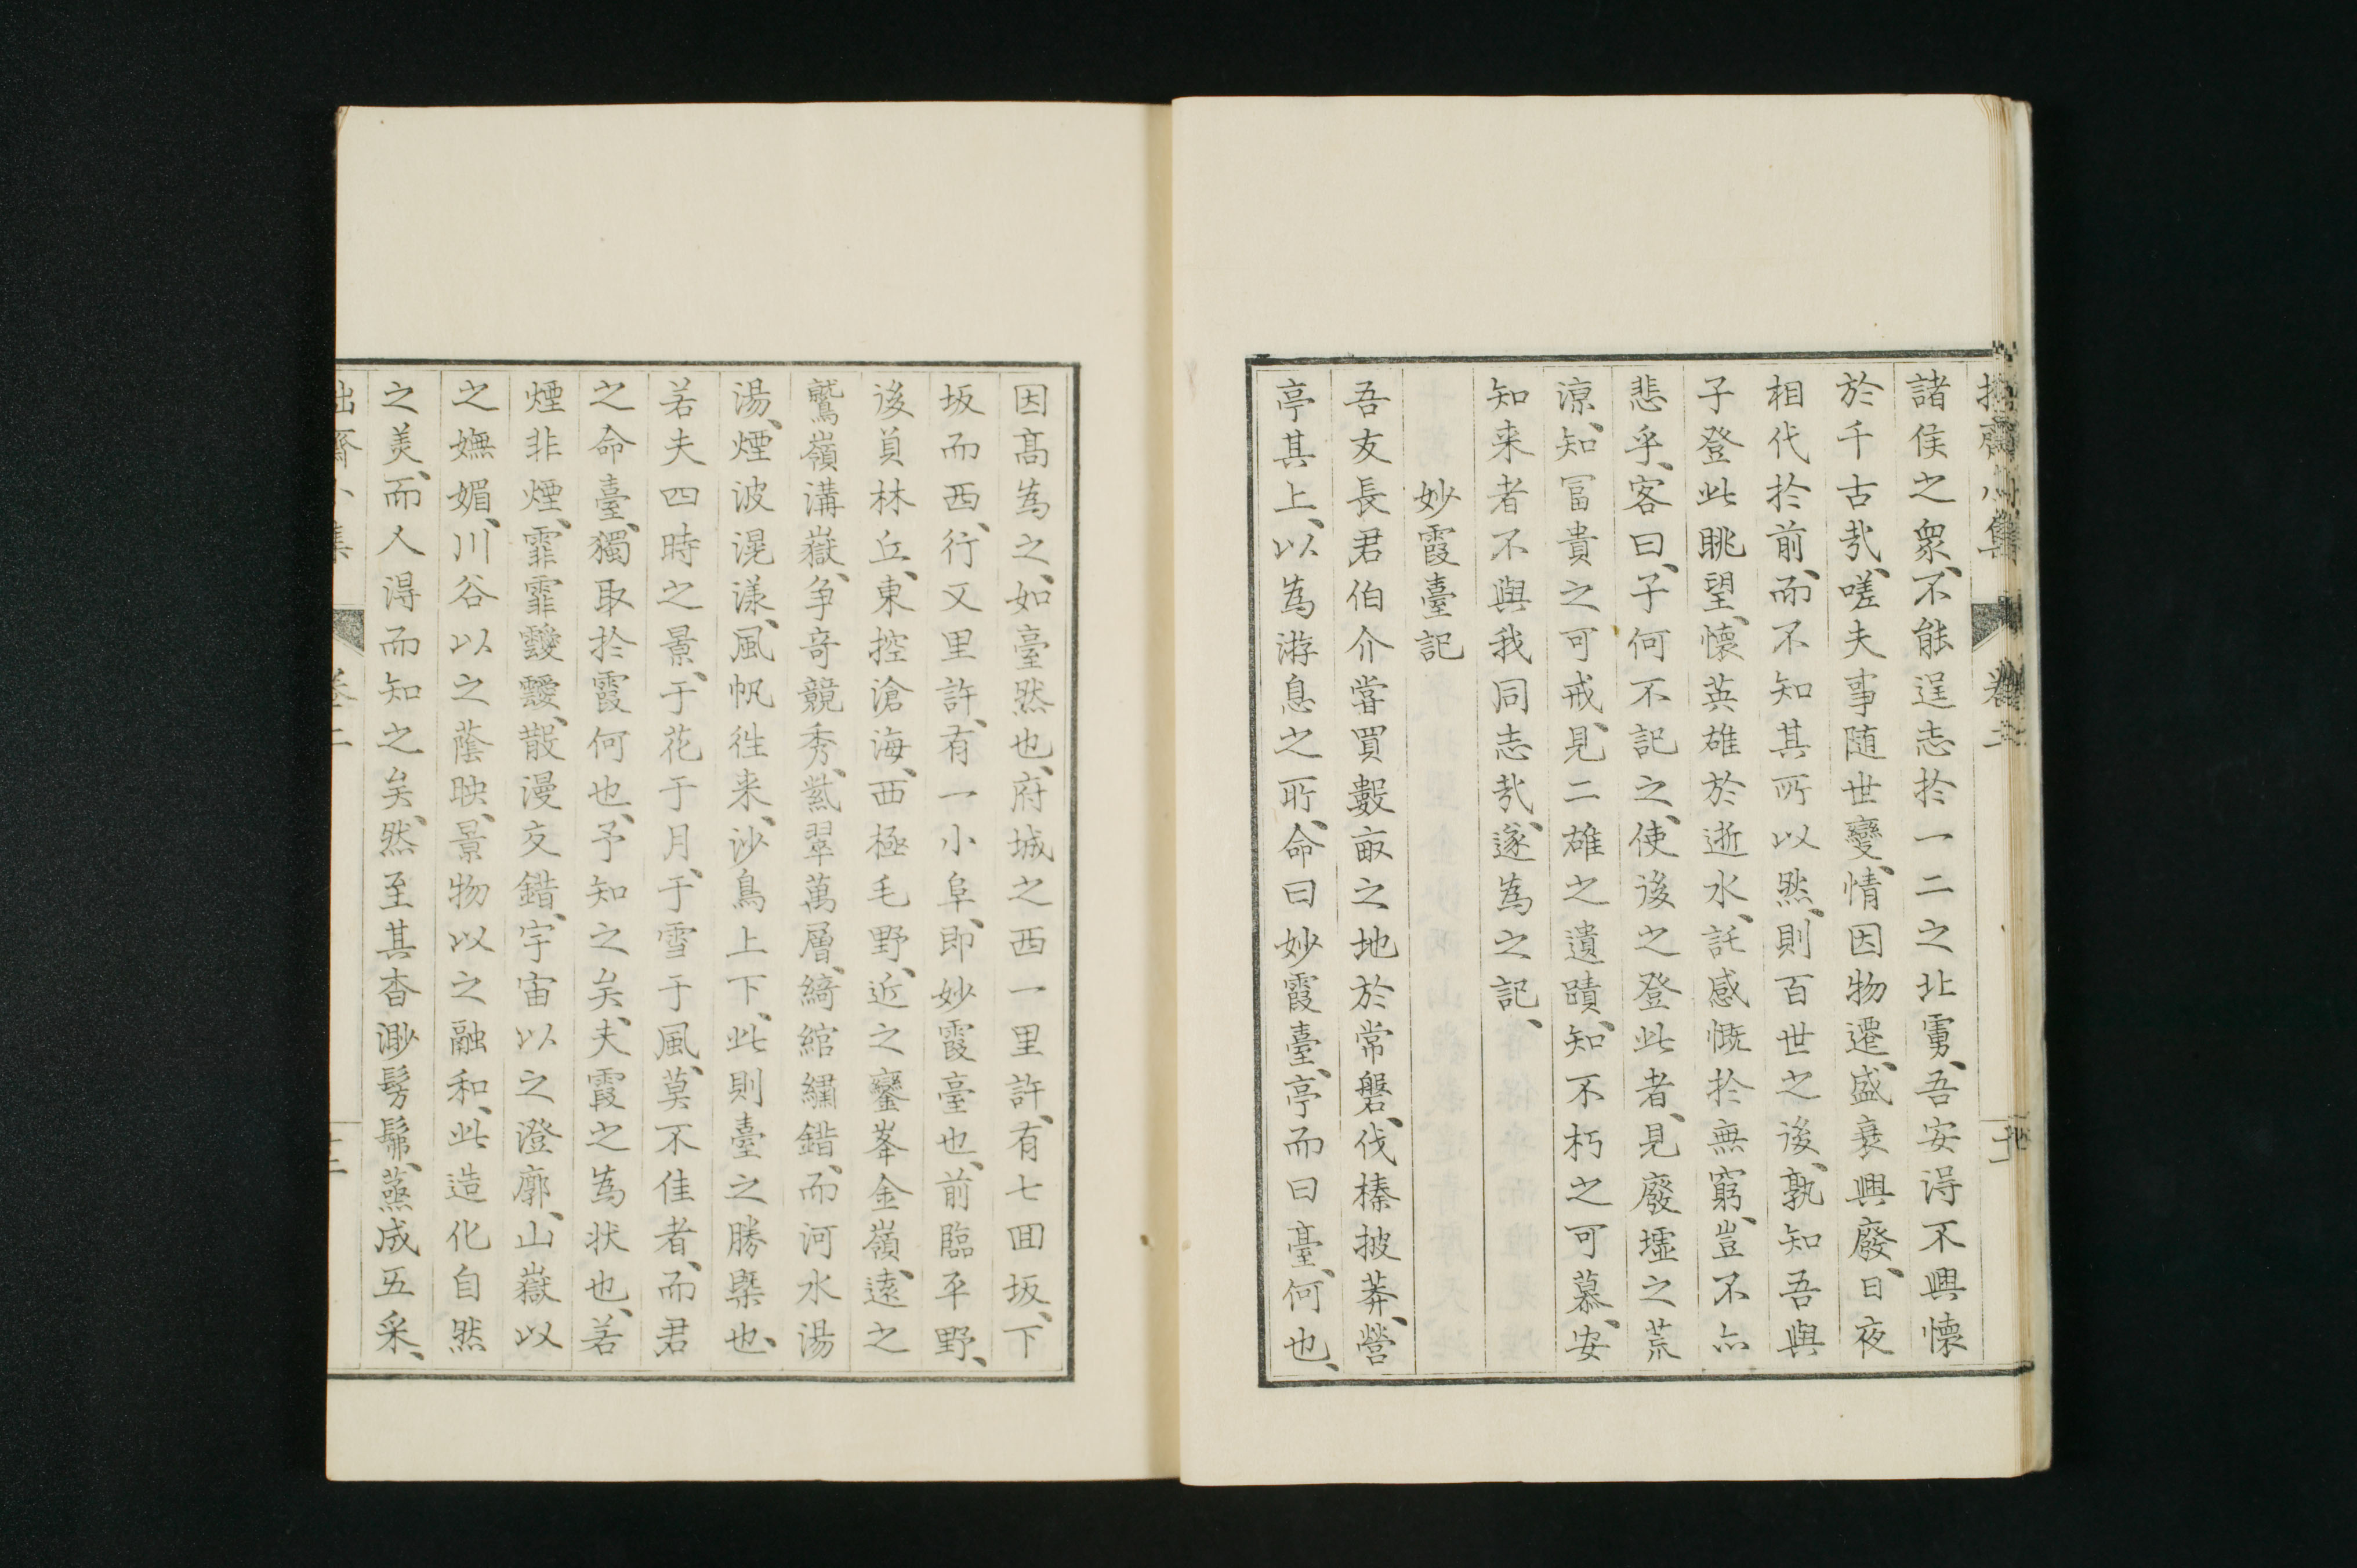 諸侯之衆、不能逞志於一二之北虜、吾安得不興懷
於千古㢤、嗟夫事随世變、情因物遷、盛衰興廢、日夜
相代於前、而不知其所以然、則百世之後、孰知吾與
子登此眺望、懷英雄於逝水、託感慨於無窮、豈不亦
悲乎、客曰、子何不記之、使後之登此者、見廢墟之荒
涼、知冨貴之可戒、見二雄之遺蹟、知不朽之可慕、安
知来者不與我同志㢤、遂為之記、
妙霞臺記
吾友長君伯介嘗買數畝之地於常磐、伐榛披莽、營
亭其上、以為游息之所、命曰妙霞臺、亭而曰臺、何也、
因髙為之、如臺然也、府城之西一里許、有七囬坂、下
坂而西、行又里許、有一小阜、即妙霞臺也、前臨平野、
後負林丘、東控滄海、西極毛野、近之鑾峯金嶺、遠之
鷲嶺溝嶽、争竒競秀、紫翠萬層、綺綰繡錯、而河水湯
湯、煙波滉漾、風帆徃来、沙鳥上下、此則臺之勝槩也、
若夫四時之景、于花于月、于雪于風、莫不佳者、而君
之命臺、獨取於霞何也、予知之矣、夫霞之為状也、若
煙非煙、霏霏靉靉、散漫交錯、宇宙以之澄廓、山嶽以
之嫵媚、川谷以之蔭映、景物以之融和、此造化自然
之美、而人得而知之矣、然至其杳渺髣髴、蒸成五采、